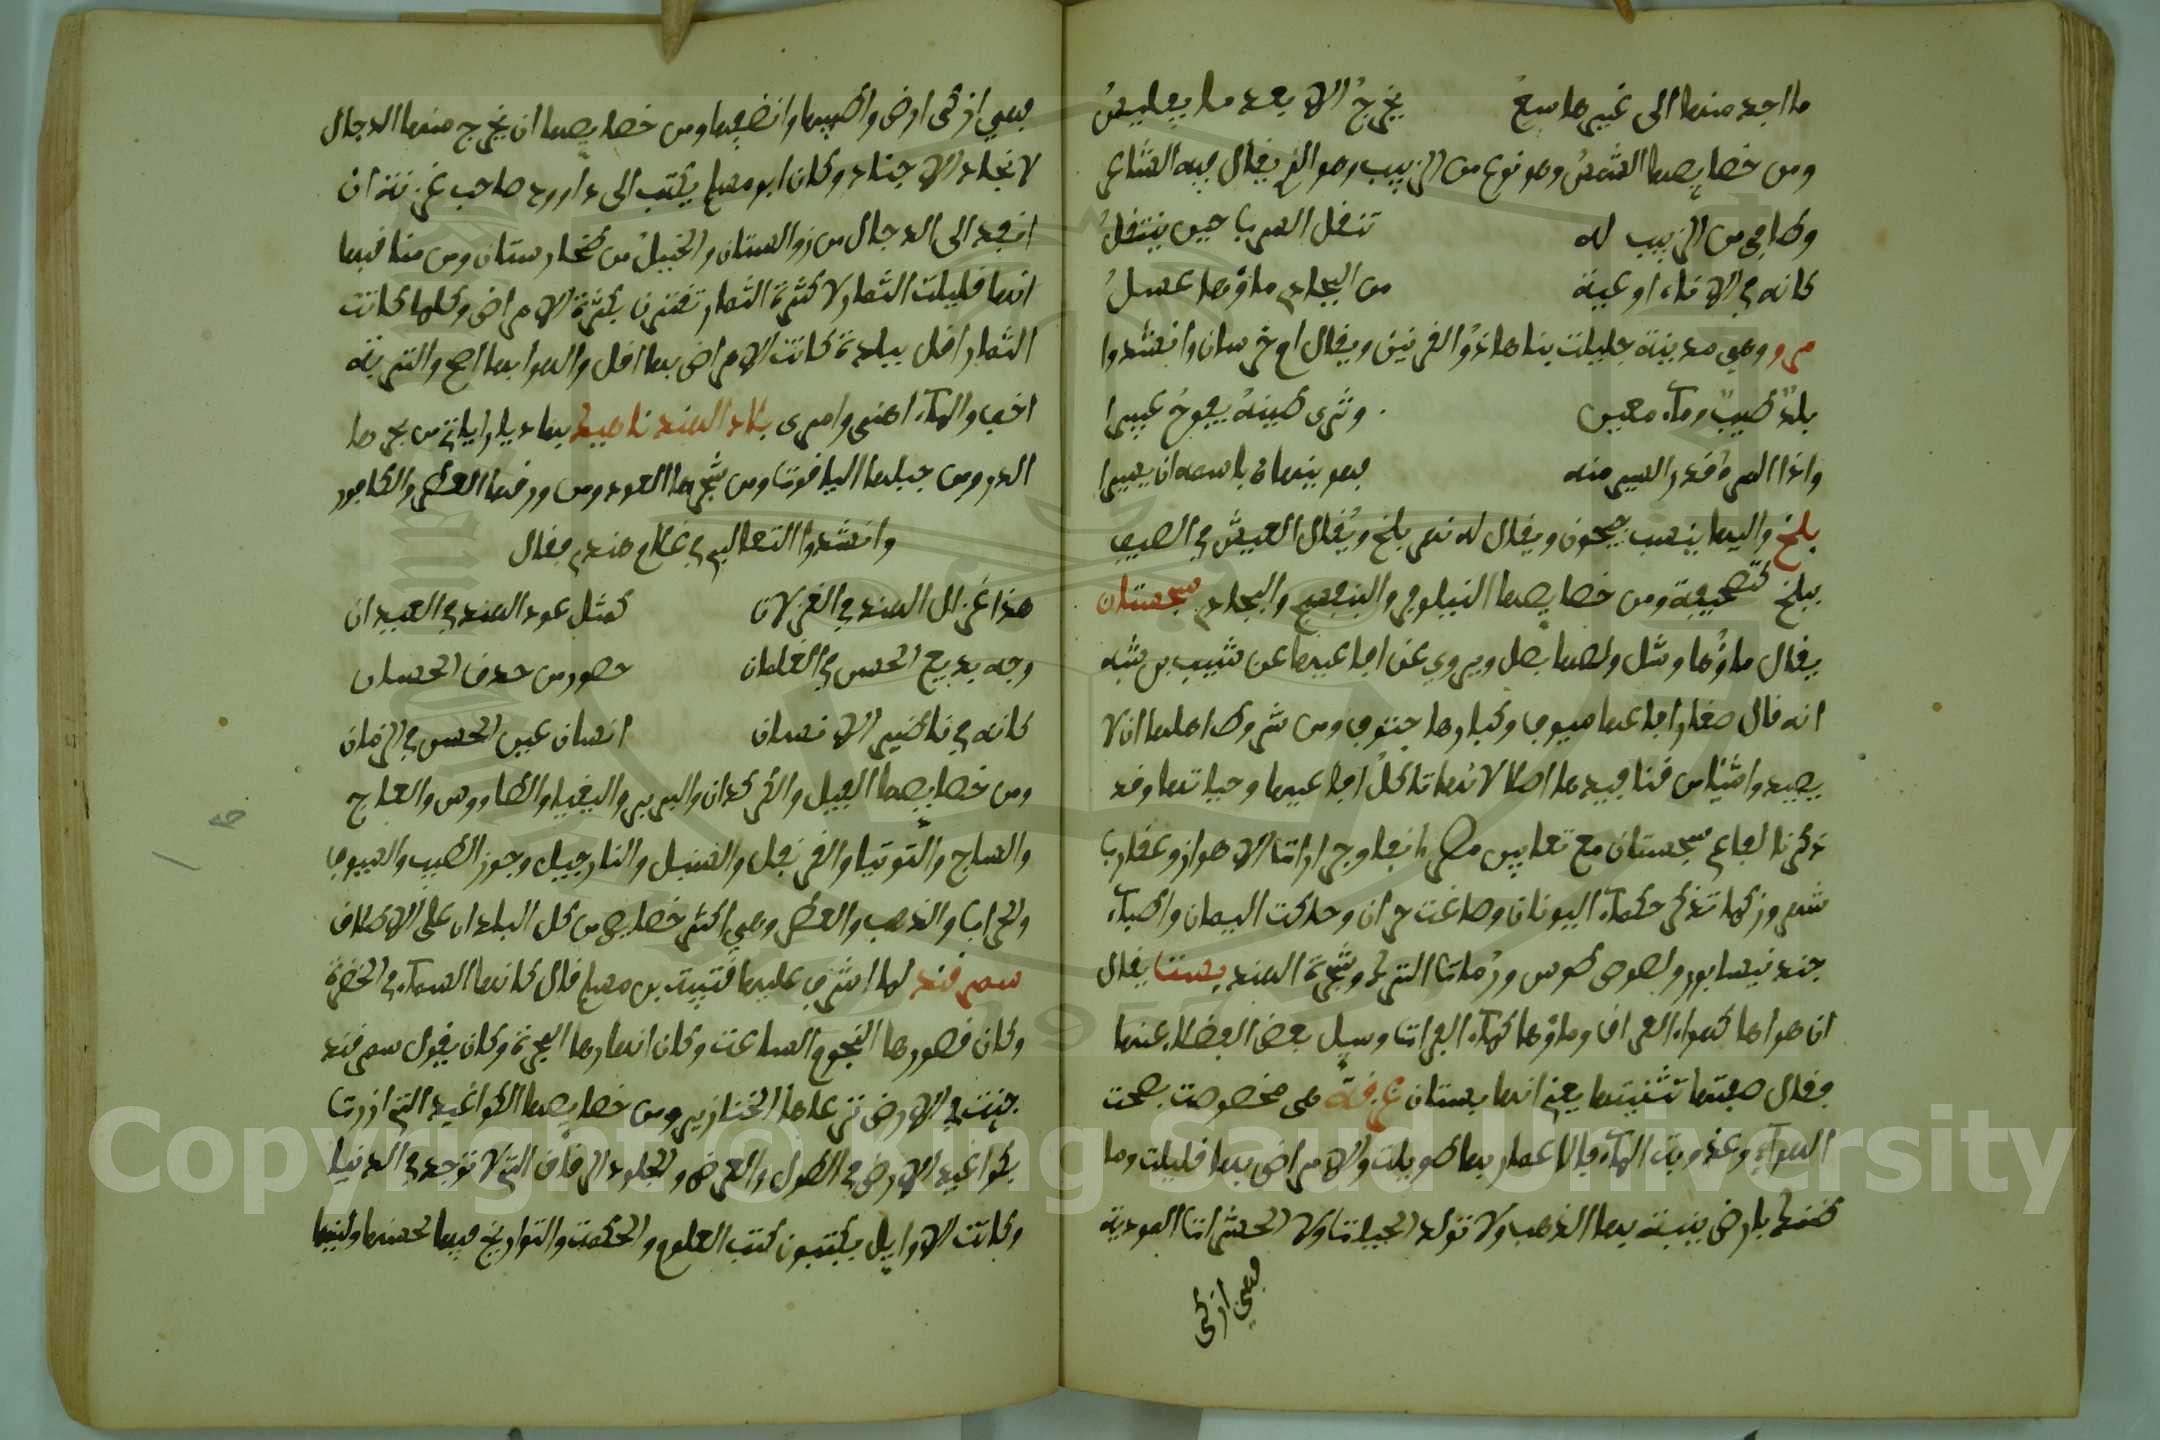 ما اجد منها الى غيرها سعة يخرج الا بعد ما يفليس
ومن خصايصها القشمش وهو نوع من الزبيب وهو الذي يقال فيه الشاعر
وطايفي من الزبيب له تنقل الشرب حين ينتقل
كانه في الاناء اوعية من البجادي ماؤها عسل
مرو وهي مدينة جليلة بناها ذو القرنين ويقال ام خرسان وانشدوا
بلد طيب وماء معين وثرى طينه يفوح عبيرا
واذا المرء قدر السير منه فهو ينهاه باسمه ان يسيرا
بلخ واليها ينسب جيحون ويقال له نهر بلخ ويقال العيش في الصيف
ببلخ كتصحيفه ومن خصايصها النيلوفر والبنفسج والبجادي سجستان
يقال ماؤها وشل ولصها بطل ويروى عن افاعيها عن شبيب بن شبه
انه قال صغار افاعيها سيوف وكبارها حتوف ومن شروط اهلها ان لا
يصيدوا شيا من قنافيدها اصلا لانها تاكل افاعيها وحياتها وقد
ذكرنا افاعي سجستان مع ثعابين مصر انفا وجرارات الاهواز وعقارب
شهرزور كما تذكر حكماء اليونان وصاغت حران وحاكت اليمان واطباء
جند نيسابور ولصوص طوس ورماة الترك وشجرة الهند بست يقال
ان هواها كهواء العراق وماؤها كماء الفرات وسيل بعض الفضلاء عنها
فقال صفتها تثنيتها يعني انها بستان غزنة هي مخصوصة بصحت
الهواء وعذوبة الماء فالاعمار بها طويلة والامراض بها قليلة وما
ظنك بارض ينبت بها الذهب ولا تولد الحيات ولا الحشرات الموذية
فهي ازكى
فهي ازكى ارض واطيبها وانضفها ومن خصايصها ان يخرج منها الرجال
لانجاد الاجناد وكان ابو مسلم يكتب الى داوود صاحب غزنة ان
انفد الى الرجال من زوالستان والخيل من طخارستان ومن مناقبها
انها قليلة الثمار لا كثرة الثمار تقترن بكثرة الامراض وكلما كانت
الثمار اقل ببلدة كانت الامراض بها اقل والهوا بها اصح والتربة
اخف والماء اهنى وامرى بلاد الهند ناهيك بها ديارا ياتي من بحرها
الدر ومن جبلها الياقوت ومن شجرها العود ومن ورقها العطر والكافور
وانشدوا الثعالبي في غلام هندي فقال
هذا غزال الهند في الغزلان كمثل عود الهند في العيدان
وجه بديع الحسن في الغلمان حصور من حدق الحسان
كانه في ناظير الانسان انسان عين الحسن في الزمان
ومن خصايصها الفيل والكركدان والببر والببغاء والطاووس والعاج
والساج والتوتيا والقرنفل والسنبل والنارجيل وجوز الطيب والسيوف
والحراب والذهب والعطر وهي اكثر خصايص من كل البلدان على الاطلاق
سمرقند لما اشرف عليها قتيبت بن مسلم قال كانها السماء في الخضرة
وكان قصورها النجوم الساعت وكان انهارها المجرة وكان يقول سمرقند
جنت في الارض ترعاها الخنازير ومن خصايصها الكواغيد التي ازرت
بكواغيد الارض في الطول والعرض والجلود الرقاق التي لا توجد في الدنيا
وكانت الاوايل يكتبون كتب العلوم والحكمت والتواريخ فيها لحسنها ولينها
Copyright © King Saud University